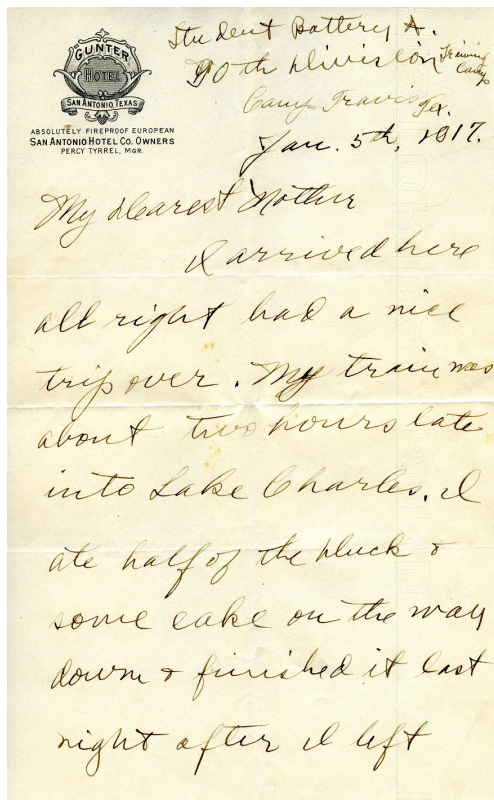 GUNTER
HOTEL
SAN ANTONIO, TEXAS
ABSOLUTELY FIREPROOF EUROPEAN
SAN ANTONIO HOTEL CO. OWNERS
PERCY TYRREL, MGR.
Student Battery A.
90th Division Training Camp
Camp Travis Tex.
Jan. 5th, 1917.
My Dearest Mother
I arrived here
all right had a nice
trip over. My train was
about two hours late
into Lake Charles. I
ate half of the Duck &
some cake on the way
down & finished it last
night after I left